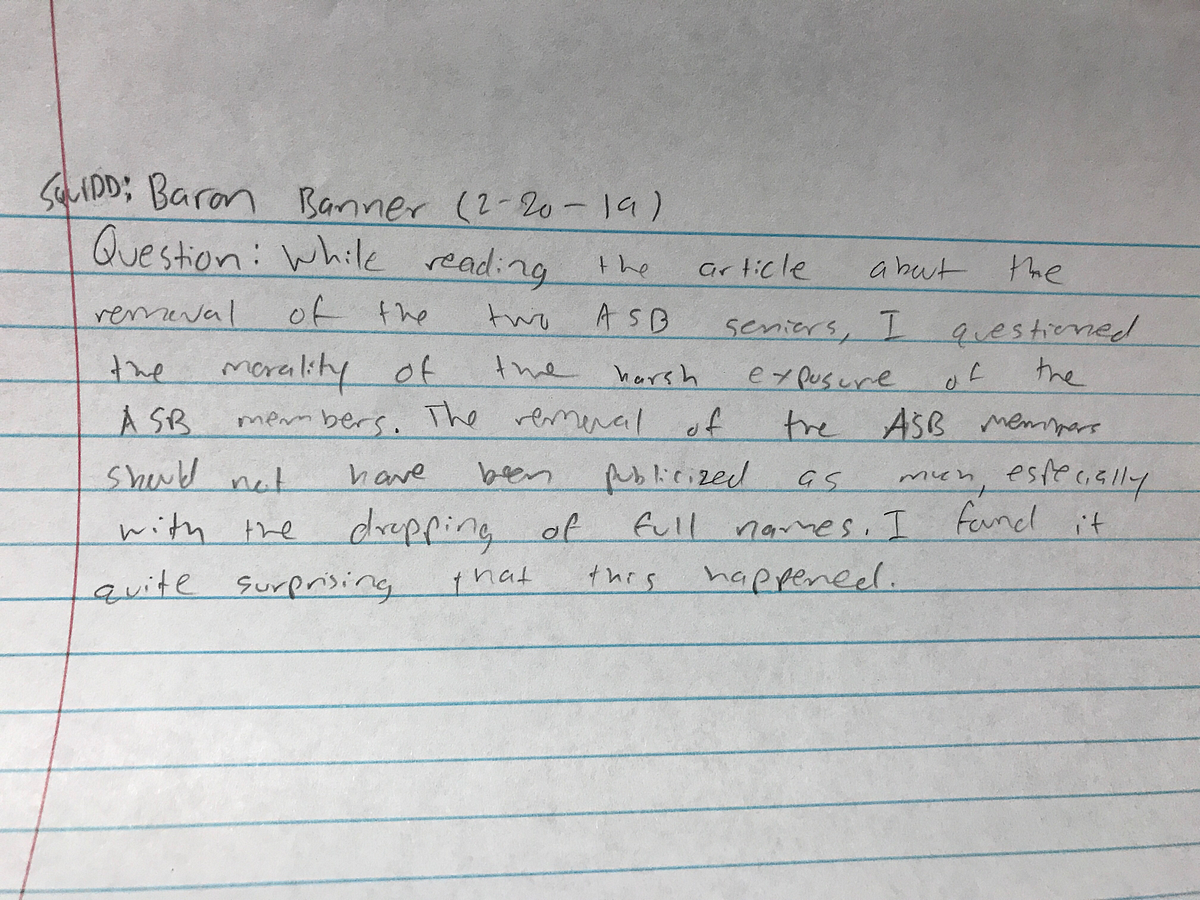 SQUIDD: Baron Banner (2-20-19)
Question: While reading the article about the
removal of the two ASB seniors, I questioned
the morality of the harsh exposure of the
ASB members. The removal of the ASB members
should not have been publicized as much, especially
with the dropping of full names. I found it
quite surprising that this happened.